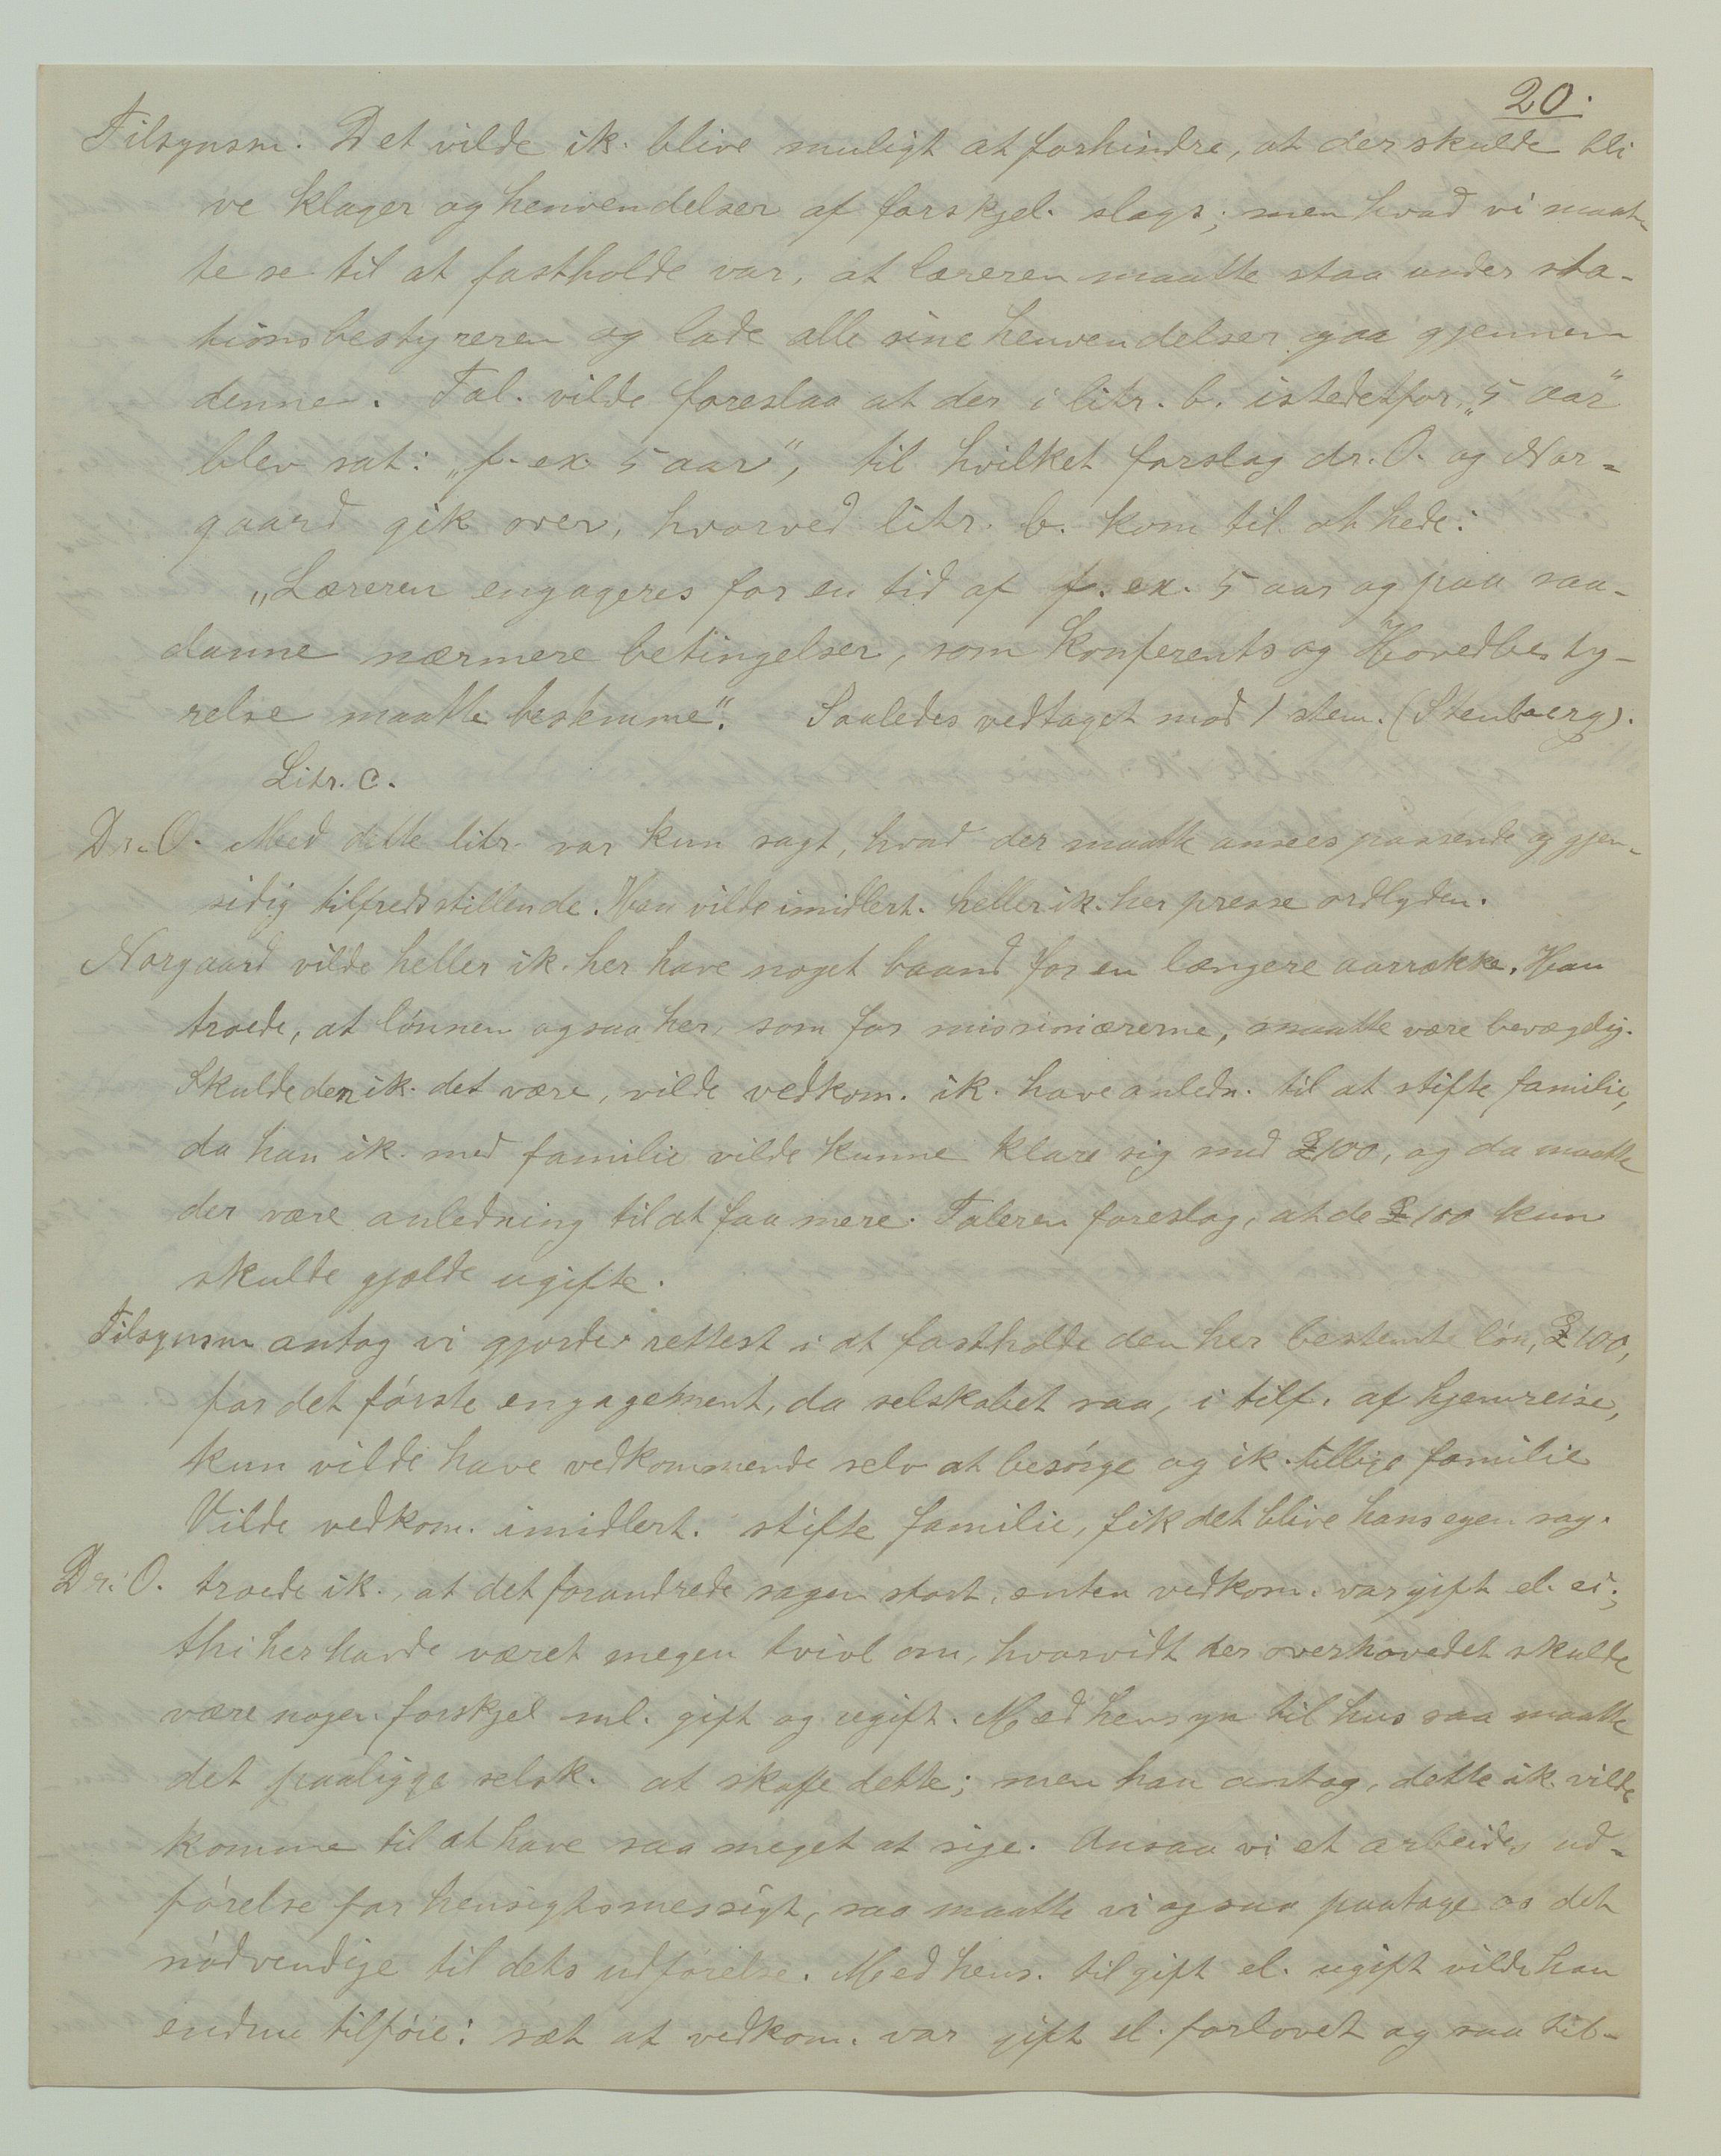 20.
Tilsynsm. Det vilde ik. blive muligt at forhindre, at der skulde bli
ve klager og henvendelser af forskjel. slags; men hvad vi maat-
te se til at fastholde var, at læreren maatte staa under sta-
tionsbestyreren og lade alle sine henvendelser gaa gjennem
denne. Tal. vilde foreslaa at der i litr. b. istedetfor „5 aar"
blev sat: „f. ex. 5 aar", til hvilket forslag dr. O. og Nor-
gaard gik over, hvorved litr. b. kom til at hede:
„Læreren engageres for en tid af f. ex. 5 aar og paa saa-
danne nærmere betingelser, som Konferents og Hovedbesty-
relse maatte bestemme". Saaledes vedtaget mod 1 stem. (Stenberg).
Litr. c.
Dr. O. Med dette litr. var kun sagt, hvad der maatte ansees passende og gjen-
sidig tilfredsstillende. Han vilde imidlert. heller ik. her presse ordlyden.
Norgaard vilde heller ik. her have noget baand for en længere aarrække. Han
troede, at lønnen ogsaa her, som for missionærerne, maatte være bevægelig.
Skulde den ik. det være, vilde vedkom. ik. have anledn. til at stifte familie,
da han ik. med familie vilde kunne klare sig med £100, og da maatte
der være anledning til at faa mere. Taleren foreslog, at de £100 kun
skulde gjælde ugifte.
Tilsynsm antog vi gjorde rettest i at fastholde den her bestemte løn, £100,
for det første engagement, da selskabet saa, i tilf. af hjemreise,
kun vilde have vedkommende selv at besørge og ik. tillige familie
Vilde vedkom. imidlert. stifte familie, fik det blive hans egen sag.
Dr. O. troede ik., at det forandrede sagen stort, enten vedkom. var gift el. ei;
thi her havde været megen tvivl om, hvorvidt der overhovedet skulde
være nogen forskjel ml. gift og ugift. Med hensyn til hus saa maatte
det paaligge selsk. at skaffe dette; men han antog, dette ik. vilde
komme til at have saa meget at sige. Ansaa vi et arbeides ud-
førelse for hensigtsmessigt, saa maatte vi ogsaa paatage os det
nødvendige til dets udførelse. Med hens. til gift el. ugift vilde han
endnu tilføie: sæt at vedkom. var gift el. forlovet og saa til-